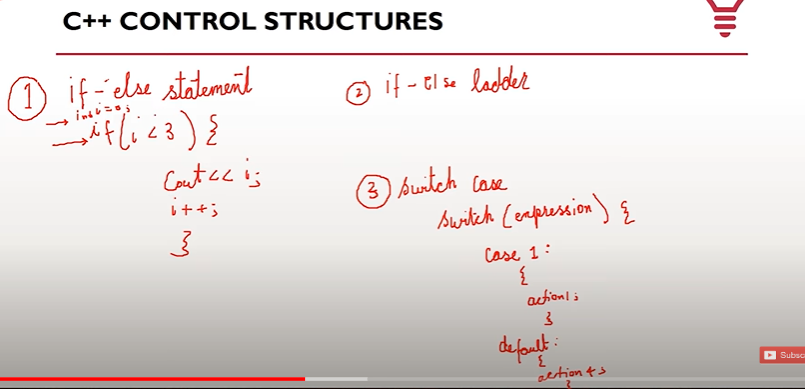 C++ CONTROL STRUCTURES
1 if-else statement
int i=0;
if(i<3) {
Cout<< i;
i++;
}
2 if-else ladder
3 switch case
switch (expression) {
case 1:
{
action1;
}
default:
{
action4;
}
Subsc